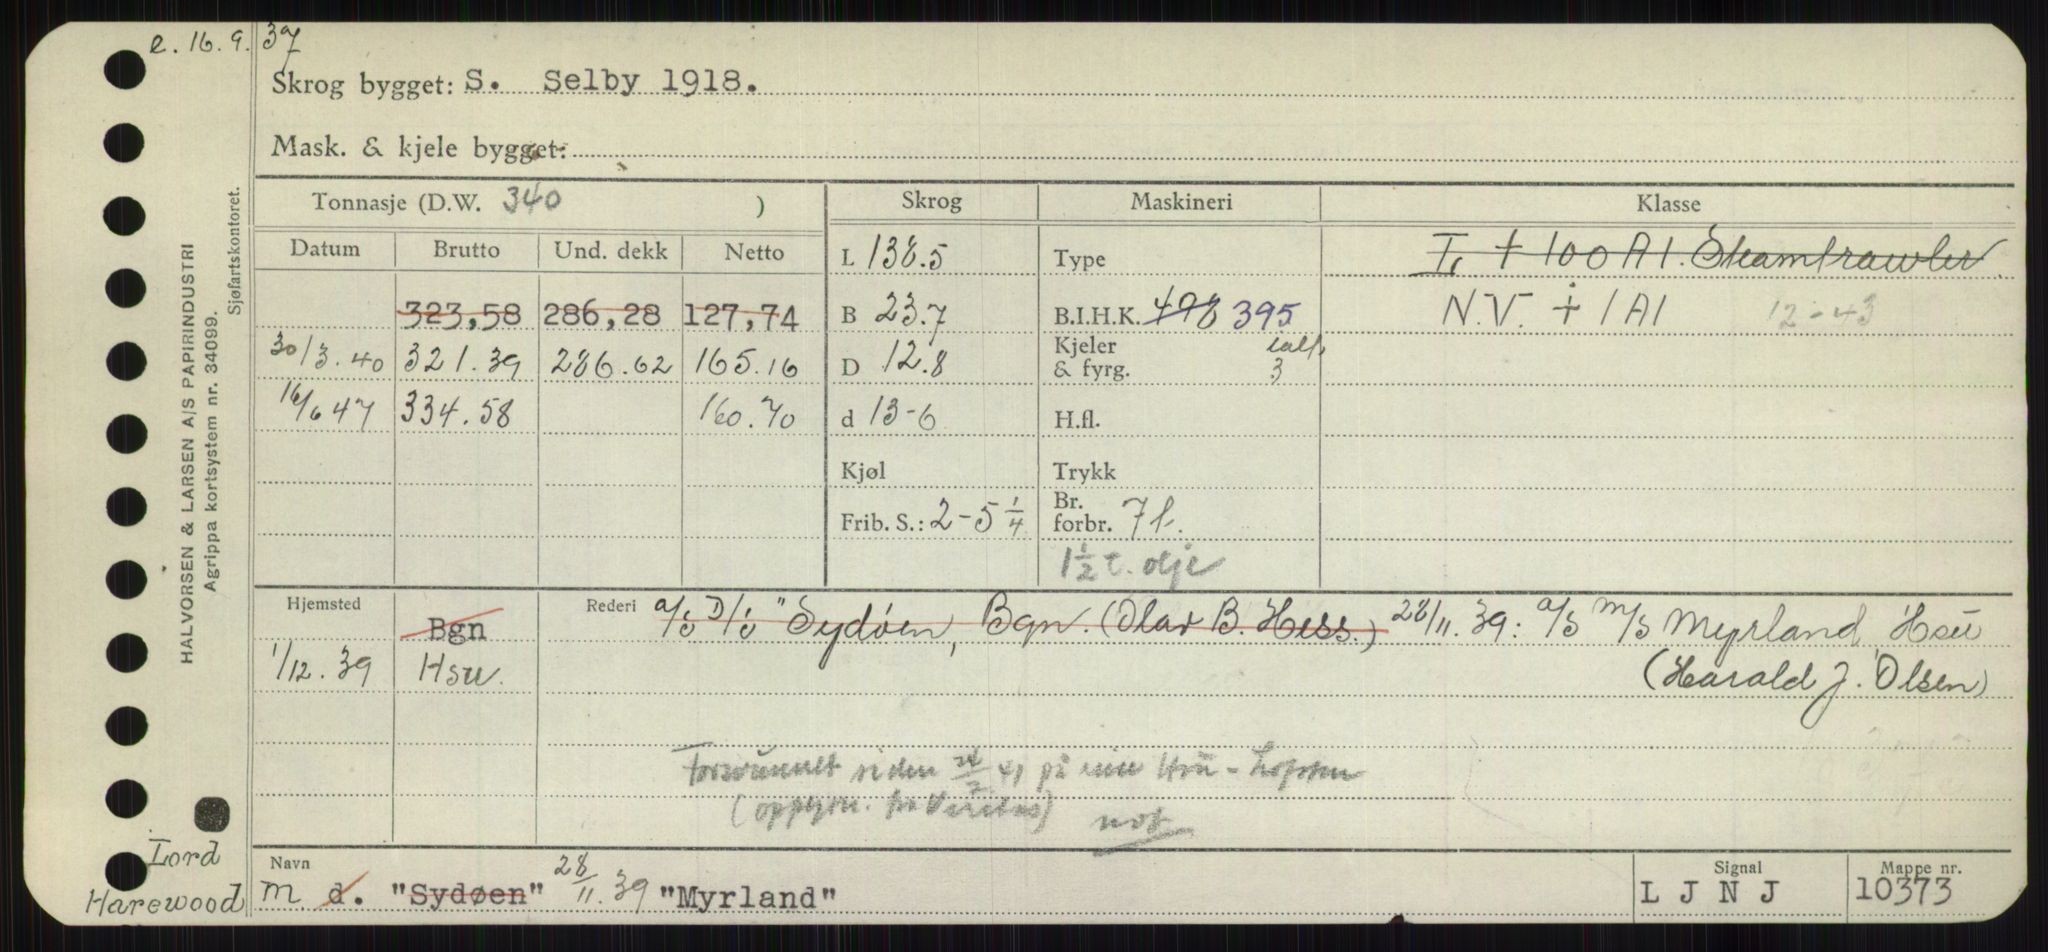 e. 16. 9. 37
Skrog bygget: S. Selby 1918.
Mask. & kjele bygget:
Tonnasje (D.W. 340 )
Skrog
Maskineri
Klasse
Datum Brutto Und. dekk Netto
323,58 286,28 127,74
30/3.40 321.39 286.62 165.16
16/6 47 334.58 160.70
L 138.5
B 23.7
D 12.8
d 13-6
Kjøl
Frib. S.: 2-5 1/4
Type
B.I.H.K. 498 395
Kjeler & fyrg. ialt 3
H.fl.
Trykk
Br. forbr. 7 t.
1 1/2 t. olje
+ 100 A1. Steamtrawler.
N.V. + 1A1 12-43
Hjemsted Bgn
1/12.39 Hsu.
Rederi A/S D/S "Sydøen, Bgn. (Olav B. Hess.) 28/11.39: A/S M/S Myrland, Hsu
(Harald J. Olsen)
Forsvunnet siden 41 på Hsu -
(oppgitt. fra Veritas)
Navn
m d. "Sydøen" 28/11.39 "Myrland"
Signal
L J N J
Mappe nr.
10373
Lord
Harewood
HALVORSEN & LARSEN A/S PAPIRINDUSTRI
Agrippa kortsystem nr. 34099.
Sjøfartskontoret.